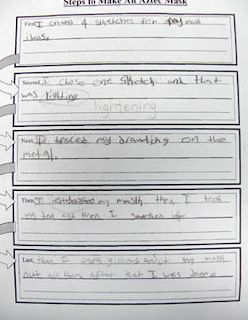 Steps to Make An Aztec Mask
First, I created 4 sketches for my mask
ideas.
Second, I chose one sketch and that
was lighting
lightening
Next, I traced my drawing on the
metal.
Then, I embossed my mask then I took
my and then I
Last, then I my mask
out and then after that I was done